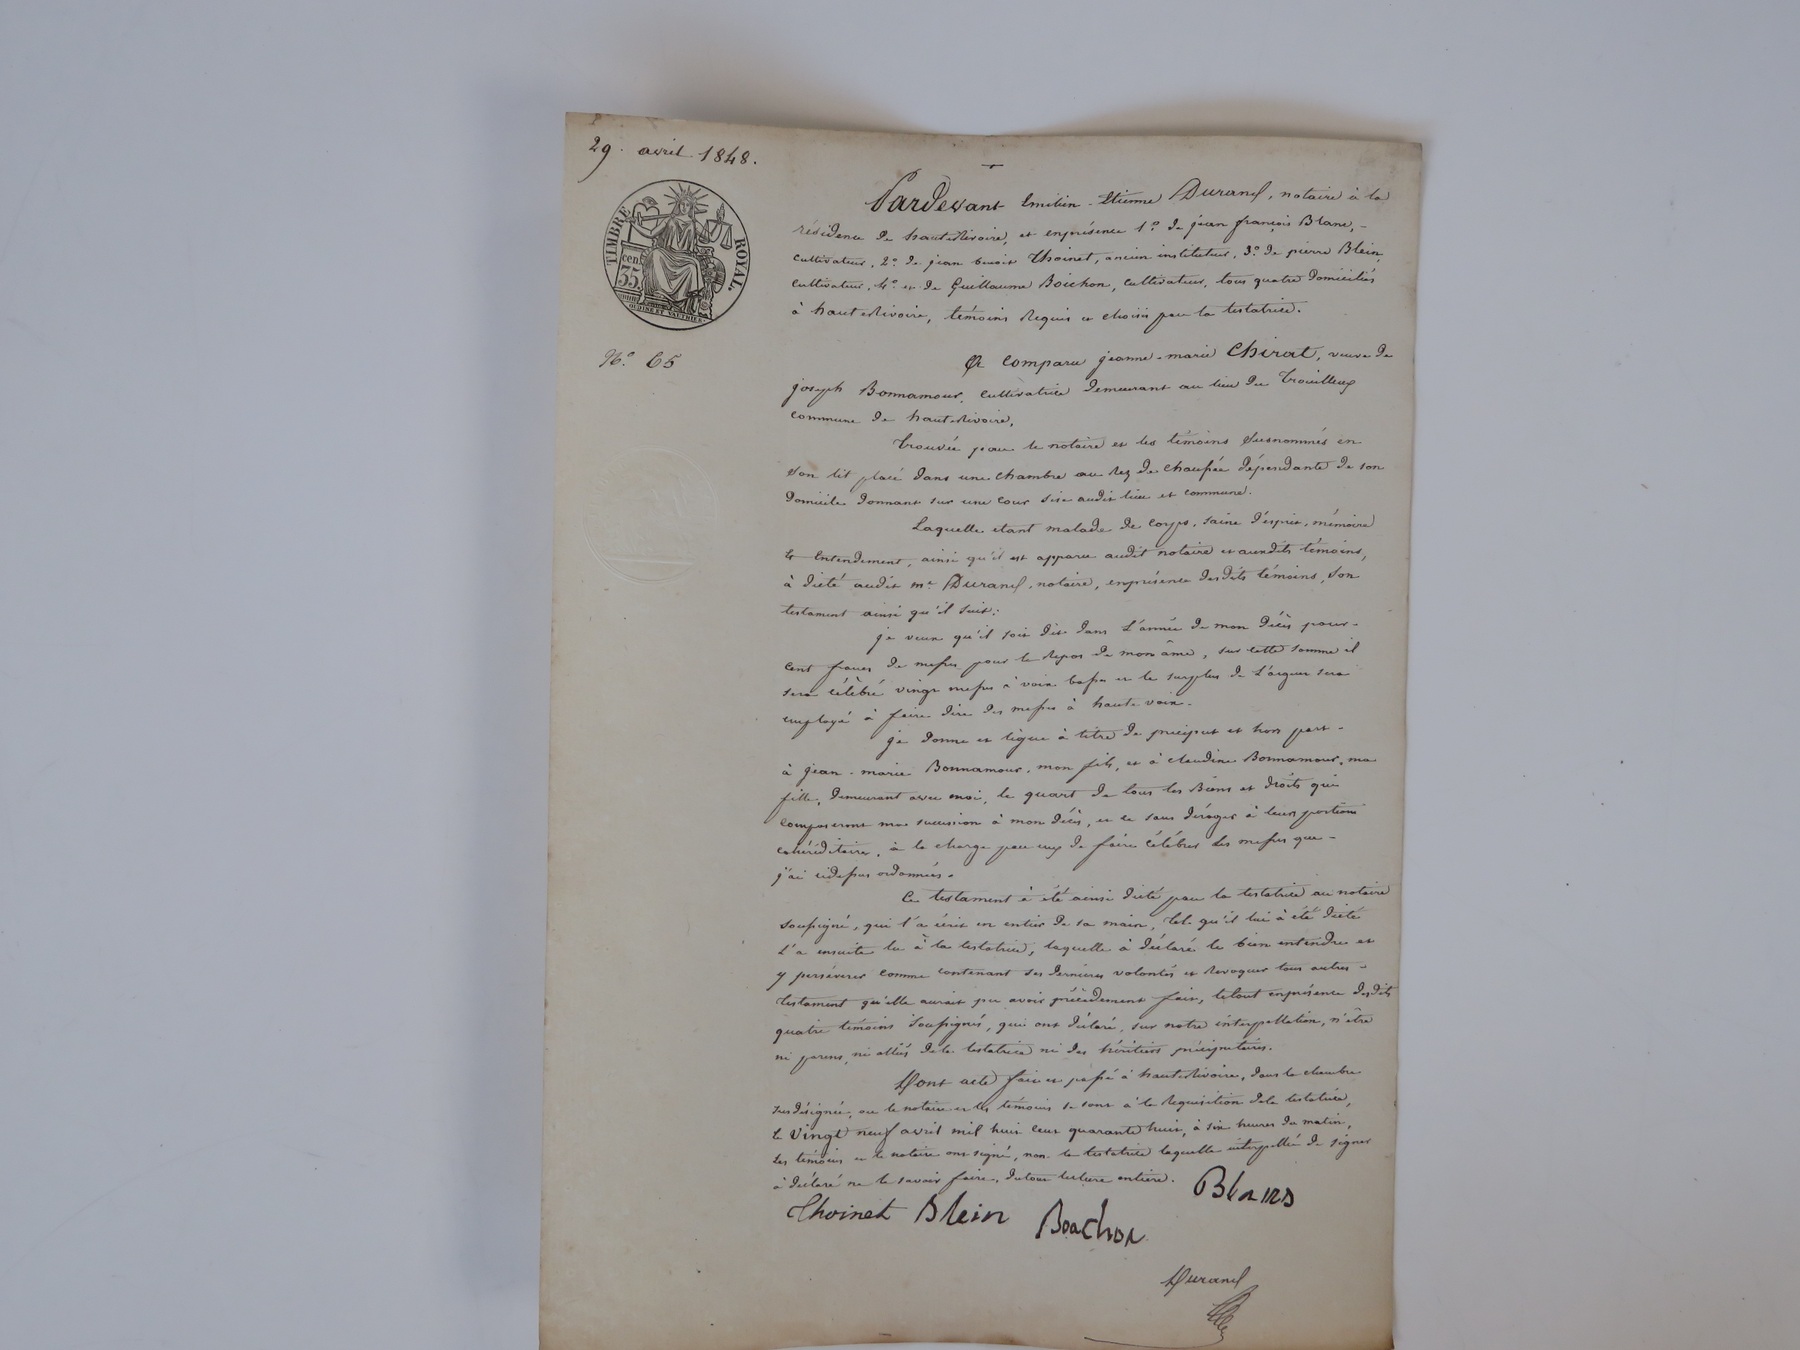 29. avril 1848.
TIMBRE ROYAL.
cen.
35.
OUDINE ET VAUTHIER
N.° 65
Pardevant Emilien-Etienne Durand, notaire à la
résidence de hauterivoire, et enprésence 1.° de jean françois Blanc,-
cultivateur, 2.° de jean benoit Thoinet, ancien instituteur, 3.° de pierre Blein,
cultivateur, 4.° et de Guillaume Boichon, cultivateur, tous quatre domiciliés
à hauterivoire, témoins requis et choisis par la testatrice.
Est comparu jeanne-marie Chirat, veuve de
joseph Bonnamour, cultivatrice demeurant au lieu du Trouilleux
commune de hauterivoire,
Trouvée par le notaire et les témoins susnommés en
son lit placé dans une chambre au rez de chaussée dépendante de son
domicile donnant sur une cour sise audit lieu et commune.
Laquelle etant malade de corps, saine d'esprit, mémoire
et entendement, ainsi qu'il est apparu audit notaire et auxdits témoins,
à dicté audit m.e Durand, notaire, enprésence desdits témoins, son
testament ainsi qu'il suit:
je veux qu'il soit dise dans l'année de mon décès pour-
cent francs de messes pour le repos de mon âme, sur cette somme il
sera célébré vingt messes à voix basse et le surplus de l'argent sera
employé à faire dire des messes à haute voix.
je donne et lègue à titre de préciput et hors part-
à jean-marie Bonnamour, mon fils, et à claudine Bonnamour, ma
fille, demeurant avec moi, le quart de tous les Biens et droits qui
composeront ma succession à mon décès, et ce sans déroger à leurs portions
cohéréditaires, à la charge par eux de faire célébrer les messes que-
j'ai cidessus ordonnées.
Ce testament à été ainsi dicté par la testatrice au notaire
soussigné, qui l'a écrit en entier de sa main, tel qu'il lui à été dicté
l'a ensuite lu à la testatrice, laquelle à déclaré le bien entendre et
y persévérer comme contenant ses dernières volontés et revoquer tous autres-
testament qu'elle aurait pu avoir précédemment fait, letout enprésence desdits
quatre témoins soussignés, qui ont déclaré, sur notre interpellation, n'être
ni parens, ni alliés dela testatrice ni des héritiers préciputaires.
Dont acte fait et passé à hauterivoire, dans la chambre
susdésignée, ou le notaire et les témoins se sont à la requisition dela testatrice,
le vingt neuf avril mil huit cent quarante huit, à six heures du matin,
les témoins et le notaire ont signé, non la testatrice laquelle interpellée de signer
à déclaré ne le savoir faire, dutout lecture entière.
Blanc
Thoinet Blein Boichon
Durand